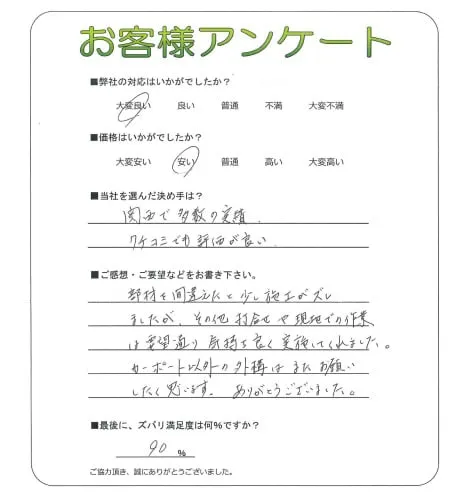 お客様アンケート
■弊社の対応はいかがでしたか？
大変良い 良い 普通 不満 大変不満
■価格はいかがでしたか？
大変安い 安い 普通 高い 大変高い
■当社を選んだ決め手は？
関西で多数の実績.
クチコミでも評価が良い.
■ご感想・ご要望などをお書き下さい。
部材を間違えたと少し施工がズレ
ましたが、その他打合せや現地での作業
は要望通り気持ち良く実施してくれました。
カーポート以外の外構はまたお願い
したく思います。 ありがとうございました。
■最後に、ズバリ満足度は何％ですか？
90 %
ご協力頂き、誠にありがとうございました。